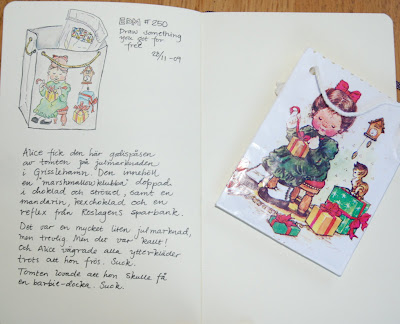 EDM #250
Draw something
you got for
free
28/11-09
Alice fick den här godispåsen
av tomten på julmarknaden
i Grisslehamn. Den innehöll
en "marshmallowklubba" doppad
i choklad och strössel, samt en
mandarin, kexchoklad och en
reflex från Roslagens sparbank.
Det var en mycket liten julmarknad,
men trevlig. Men det var kallt!
Och Alice vägrade alla ytterkläder
trots att hon frös. Suck.
Tomten lovade att hon skulle få
en barbie-docka. Suck.